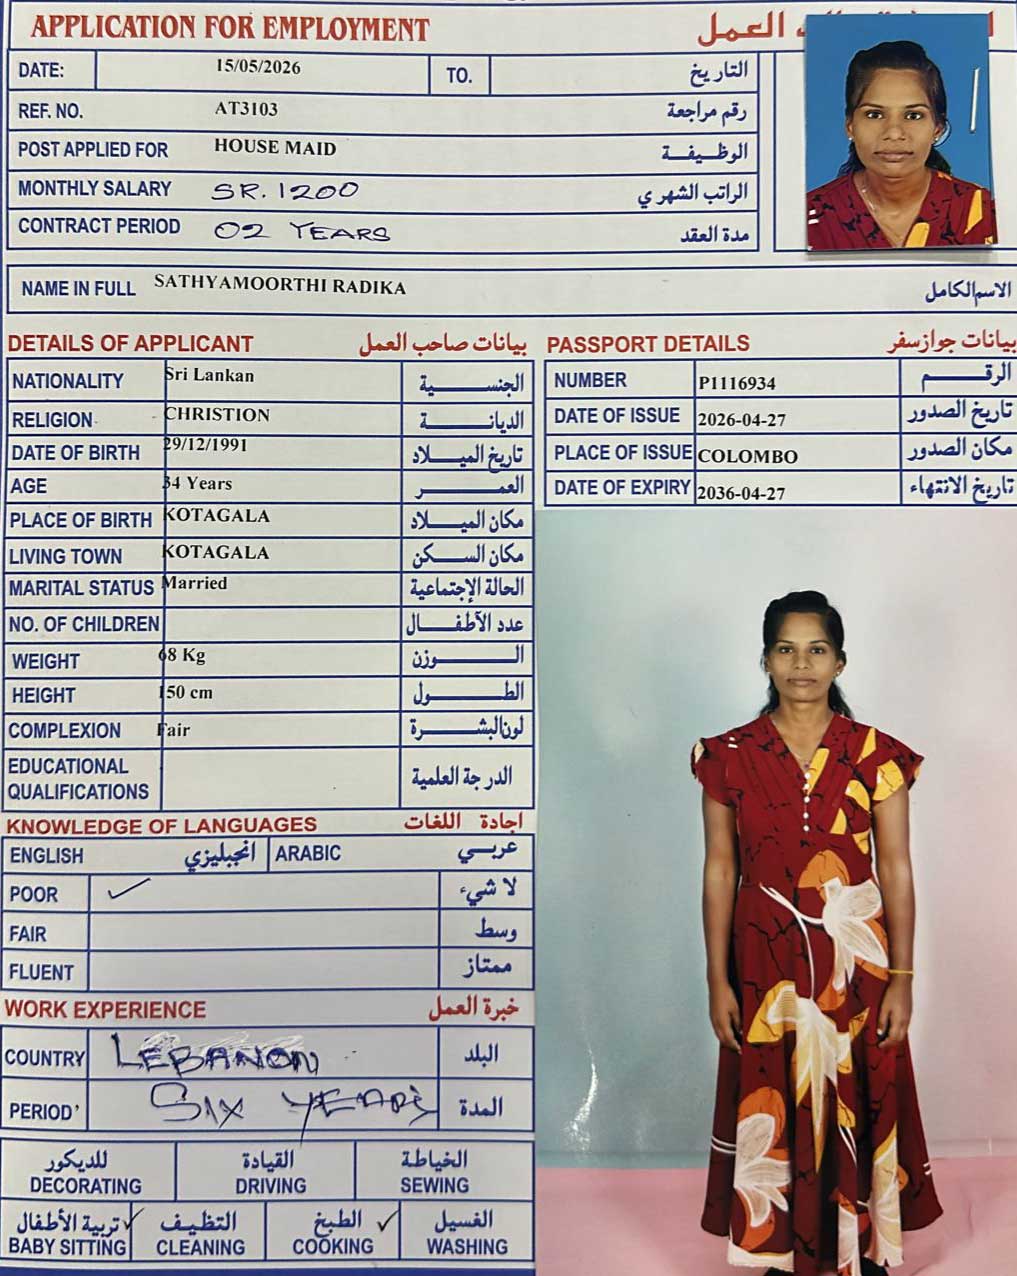 APPLICATION FOR EMPLOYMENT العمل
DATE: 15/05/2026 TO. التاريخ
REF. NO. AT3103 رقم مراجعة
POST APPLIED FOR HOUSE MAID الوظـيفـــة
MONTHLY SALARY SR. 1200 الراتب الشهري
CONTRACT PERIOD 02 YEARS مدة العقد
NAME IN FULL SATHYAMOORTHI RADIKA الاسم الكامل
DETAILS OF APPLICANT بيانات صاحب العمل
NATIONALITY Sri Lankan الجنســـــــية
RELIGION CHRISTION الديانـــــــــة
DATE OF BIRTH 29/12/1991 تاريخ الميـــلاد
AGE 34 Years العمــــــــر
PLACE OF BIRTH KOTAGALA مكان الميـــلاد
LIVING TOWN KOTAGALA مكان الســـكن
MARITAL STATUS Married الحالة الإجتماعية
NO. OF CHILDREN عدد الأطفــــال
WEIGHT 68 Kg الـــــــــوزن
HEIGHT 150 cm الطـــــــــول
COMPLEXION Fair لون البشـــــرة
EDUCATIONAL QUALIFICATIONS الدرجة العلمية
PASSPORT DETAILS بيانات جواز سفر
NUMBER P1116934 الرقـــــــم
DATE OF ISSUE 2026-04-27 تاريخ الصدور
PLACE OF ISSUE COLOMBO مكان الصدور
DATE OF EXPIRY 2036-04-27 تاريخ الانتهاء
KNOWLEDGE OF LANGUAGES اجادة اللغات
ENGLISH انجبليزي ARABIC عربـــي
POOR ✓ لا شيء
FAIR وسط
FLUENT ممتاز
WORK EXPERIENCE خبرة العمل
COUNTRY LEBANON البلد
PERIOD' SIX YEARS المدة
للديكور القيادة الخياطة
DECORATING DRIVING SEWING
تربية الأطفال ✓ التظيـف الطبخ ✓ الغسيل
BABY SITTING CLEANING COOKING WASHING